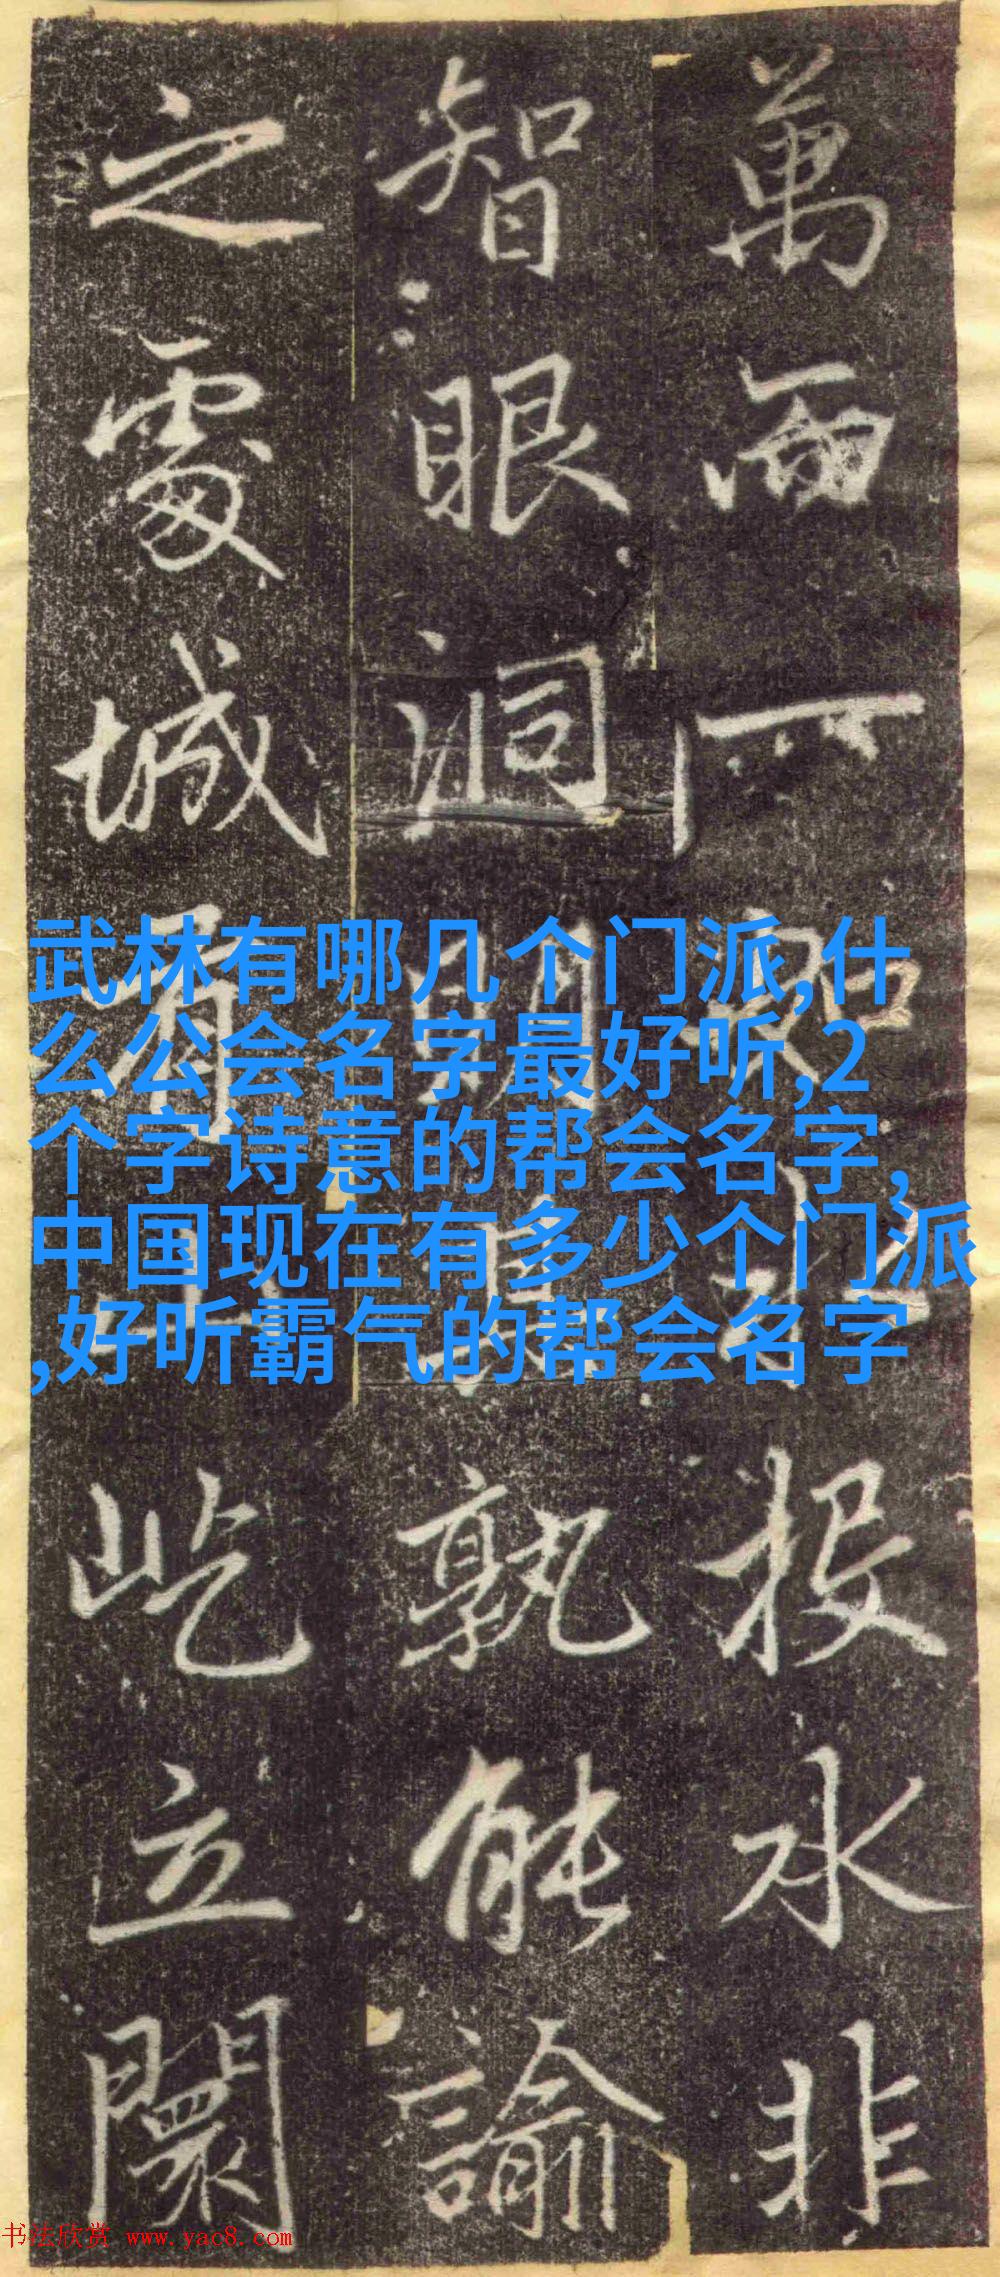 萬而一水投水非
智眼洞明其孰能諭
之處城有屹立闤
武林有哪几个门派,什
么公会名字最好听,2
个字诗意的帮会名字,
中国现在有多少个门派
,好听霸气的帮会名字
书法欣赏 www.yac8.com